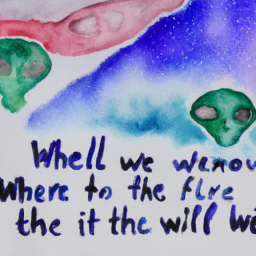 Whell we wenow
Where to the flre
the it the will We